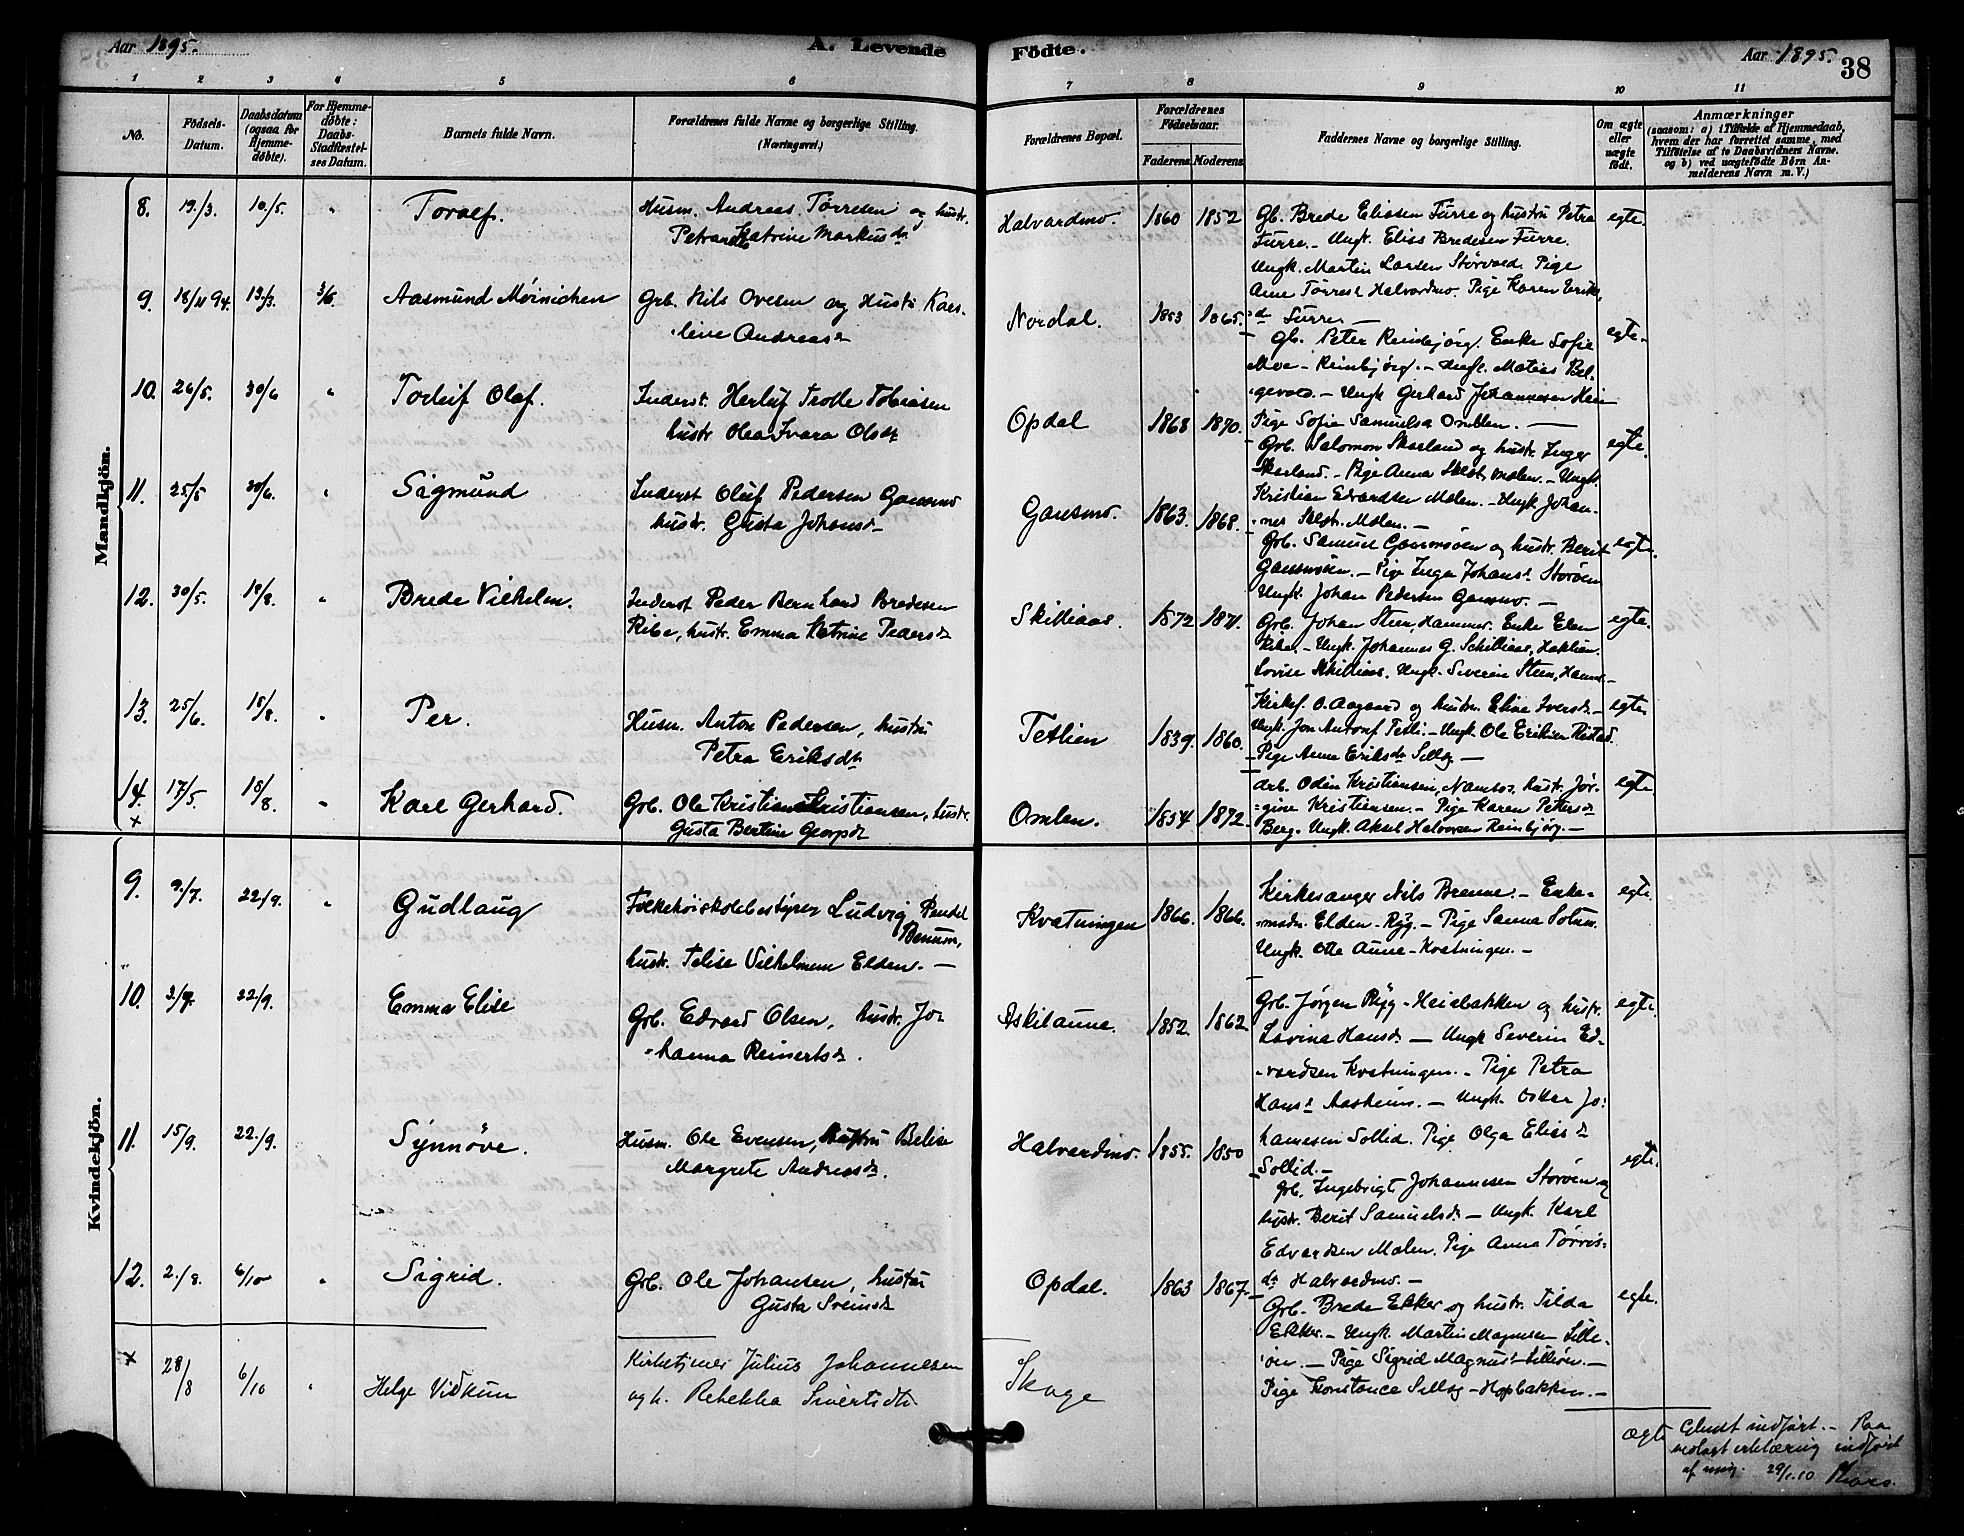 Aar 1895.
A. Levende Födte.
Aar 1895.
38
1 2 3 4 5 6 7 8 9 10 11
No.
Födsels-Datum.
Daabsdatum (ogsaa for Hjemmedöbte).
For Hjemmedöbte: Daabs-Stadfæstelses Datum.
Barnets fulde Navn.
Forældrenes fulde Navne og borgerlige Stilling. (Næringsvei.)
Forældrenes Bopæl.
Forældrenes Födselsaar.
Faderens. Moderens.
Faddernes Navne og borgerlige Stilling.
Om ægte eller uægte födt.
Anmærkninger
(saasom: a) i Tilfælde af Hjemmedaab, hvem der har forrettet samme, med Tilföielse af to Daabsvidners Navne. og b) ved uægtefödte Börn Anmelderens Navn m. V.)
Mandkjön.
8. 19/3. 10/5. " Toralf. Husm. Andreas Tørresen og hustr.
Katrine Markusdr
Halvardmo. 1860 1852
Gb. Brede Eliasen Furre og hustru Petra
Furre. – Ungk. Elias Bredesen Furre.
Ungk. Martin Larsen Pige
Ane Halvardmo. Pige Karen Eriks
dr Furre –
egte.
9. 18/11 94. 13/3. 3/6. Aasmund Møinichen Grb. Nils Ovesen og Hustr. Kars-
line Andreasdr
Nordal. 1853 1865.
Gb. Peter Reinbjørg. Enke Sofie
Moe – Reinbjørg. – Ungk. Matias
Ungk Gerhard Johannesen
Pige Sofie Samuelsd Omblen. –
egte.
10. 26/5. 30/6 " Torleif Olaf. Inderst. Herluf Trolle Tobiasen
hustr Olea Ivara Olsdtr
Opdal 1868 1870.
Grb. Salomon Skarland og hustr. Inger
Skarland. – Pige Anna Malen. – Ungk.
Kristian Edvardsen Malen. – Ungk. Johan-
nes Malen. –
egte.
11. 25/5 30/6. " Sigmund Inderst Oluf Pedersen Gansmo
hustr. Gusta Johansd.
Gansmo. 1863. 1868.
Grb. Samuel og hustr. Berit
Pige Inga Johansd. Storøen
Ungk. Johan Pedersen Gansmo. –
egte.
12. 30/5. 18/8. " Brede Vilhelm. Inderst Peder Bernhard Bredesen
Ribe, hustr. Emma Katrine Pedersdr
Skilliaas. 1872 1871.
Grb. Johan Steen, Hammer. Enke Elen
Ribe. – Ungk. Johannes G. Skilliaas,
Lovise Skilliaas. Ungk. Severin Steen,
egte.
13. 25/6. 18/8. " Per. Husm. Anton Pedersen, hustru
Petra Eriksdtr
Tetlien 1839. 1860.
Kirkes. O. Aagaard og hustru Eline Iversdr. –
Ungk. Jon Antonsen Tetli. – Ungk. Ole Eriksen Ristad.
Pige Anne Eriksdr Selleg –
egte.
14. 17/5. 18/8. " Karl Gerhard. Grb. Ole Kristian Kristiansen, hustr.
Gusta Bertine Georgsdr
Omlen. 1854 1872.
Arb. Odin Kristiansen, Namsos, hustr. Jør-
gine Kristiansen. – Pige Karen Petersdr
Berg. Ungk. Aksel Halvorsen Reinbjørg. –
egte.
Kvindekjön.
9. 9/7. 22/9. " Gudlaug Folkehøiskolebestyrer Ludvig Bendel
Benum,
hustr. Telise Vilhelmine Elden. –
Kvatningen 1866. 1866.
Kirkesanger Nils Brenne. – Enke-
madm. Elden – Ryg. – Pige Sanna Solum.
Ungk. Otte Aune – Kvatningen. –
egte.
10. 3/7. 22/9. Emma Elise Grb. Edvard Olsen, hustr. Jo-
hanna Reinertsdr.
Askilaune. 1852. 1862
Grb. Jørgen Ryg – Heiebakken og hustr.
Lovina Hansd – Ungk Severin Ed-
vardsen Kvatningen. – Pige Petra
Hansd Aasheim. – Ungk. Oskar Jo-
hannesen Sollid. Pige Olga Eliasdr
Sollid. –
egte.
11. 15/9. 22/9. " Synnøve. Husm. Ole Evensen, hustru Belise
Margrete Andreasdr
Halvardmo. 1855. 1850
Grb. Ingebrigt Johannesen Storøen og
hustr. Berit Samuelsdr – Ungk. Karl
Edvardsen Malen. Pige Anna Tørris-
dr Halvardmo. –
egte.
12. 2/8. 6/10 " Sigrid. Grb. Ole Johansen, hustru
Gusta Sveinsdr
Opdal. 1863 1867.
Grb. Brede Ekker og hustr. Tilda
Ekker. – Ungk. Martin Magnusen Lille-
øen. – Pige Sigrid Magnusd Lilleøen. –
Pige Konstance Selleg – Hopbakken. –
egte.
x 28/8 6/10 " Helge Vidkun Kirketjener Julius Johannesen
og h. Rebekka Sivertsdtr
Skage
ægte
Glemt indført. – Paa
vedlagt erklæring indført
af mig. 29/1.10